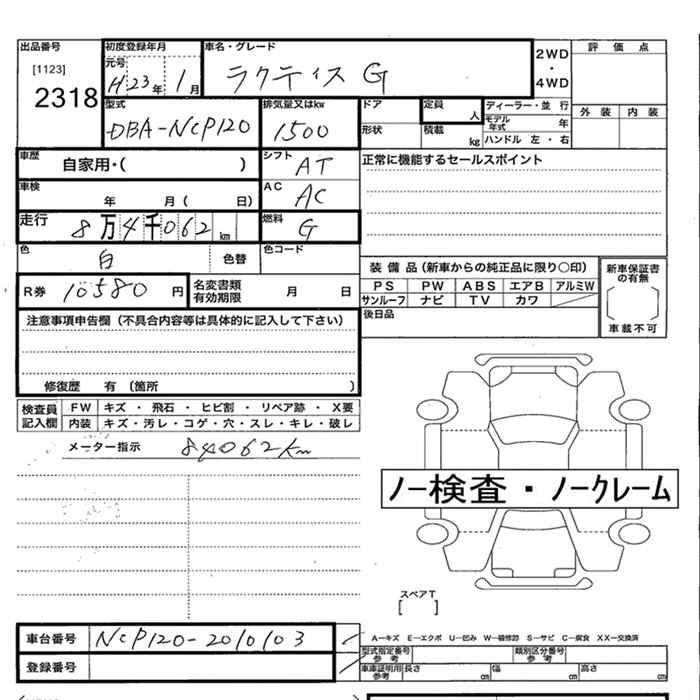 出品番号 初度登録年月 車名・グレード 評価点
[1123] 元号 2WD
2318 H23年 1月 ラクティス G ・
4WD 外装 内装
型式 排気量又はkw ドア 定員 人 ディーラー・並行
DBA-NCP120 1500 形状 積載 kg モデル年式 年
ハンドル 左・右
車歴 自家用・( ) シフト AT 正常に機能するセールスポイント
車検 年 月( 日) AC AC
走行 8万4千062km 燃料 G
色 白 色替 色コード
装備品(新車からの純正品に限り○印) 新車保証書の有無
R券 10580円 名変書類有効期限 月 日 PS PW ABS エアB アルミW
サンルーフ ナビ TV カワ
車載不可
注意事項申告欄(不具合内容等は具体的に記入して下さい) 後日品
修復歴 有 (箇所 )
検査員記入欄 FW キズ・飛石・ヒビ割・リペア跡・X要
内装 キズ・汚レ・コゲ・穴・スレ・キレ・破レ
メーター指示 84062km
ノー検査・ノークレーム
スペアT
[ ]
車台番号 NCP120-2010103 A-キズ E-エクボ U-凹み W-補修跡 S-サビ C-腐食 XX-交換済
型式指定番号 参考 類別区分番号 参考
登録番号 車庫証明用 参考 長さ cm 幅 cm 高さ cm